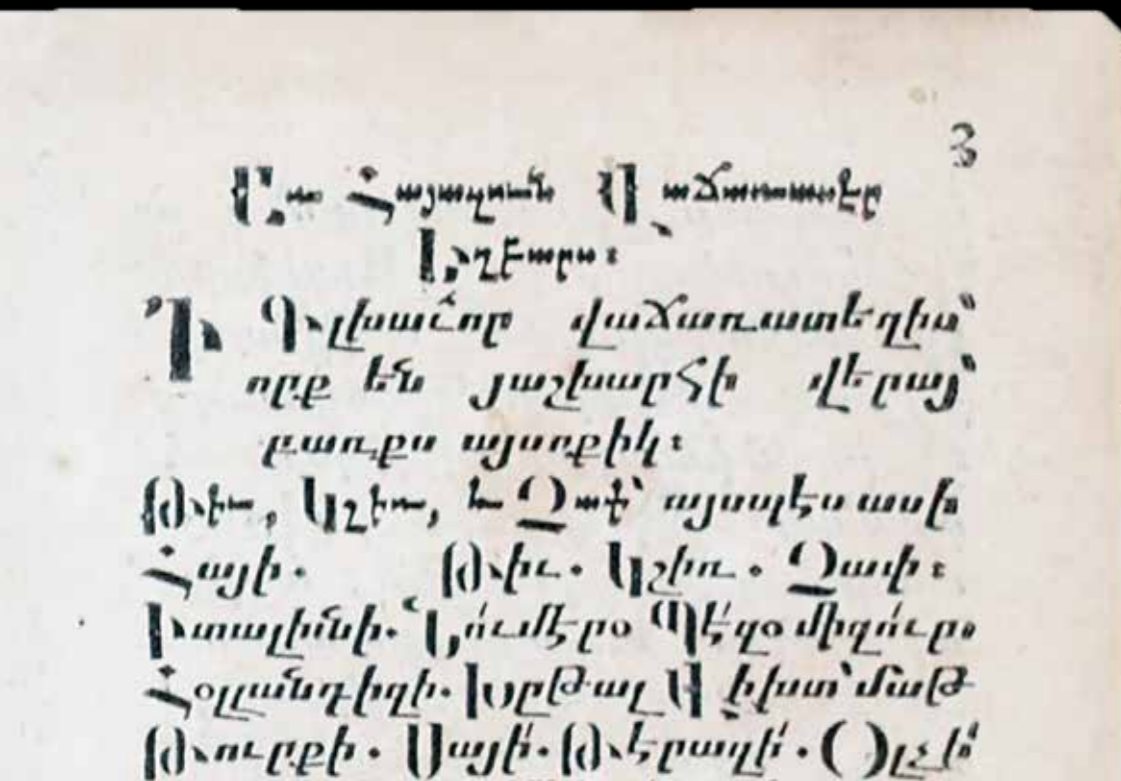 3
Ի Գլխաւոր վաճառատեղիս՝
որք են յաշխարհի վերայ՝
բառքս այսոքիկ։
Թիւ, Կշիռ, և Չափ՝ այսպէս ասի
Հայի. Թիւ. Կշիռ. Չափ։
Իտալինի. Նումէրօ Պէզօ միզուրօ
Հօլլանդիզի. Խըթալ Վիխտ՝ մաթ
Թուրքի. Սայի. Թէրազի. Օլչի՝